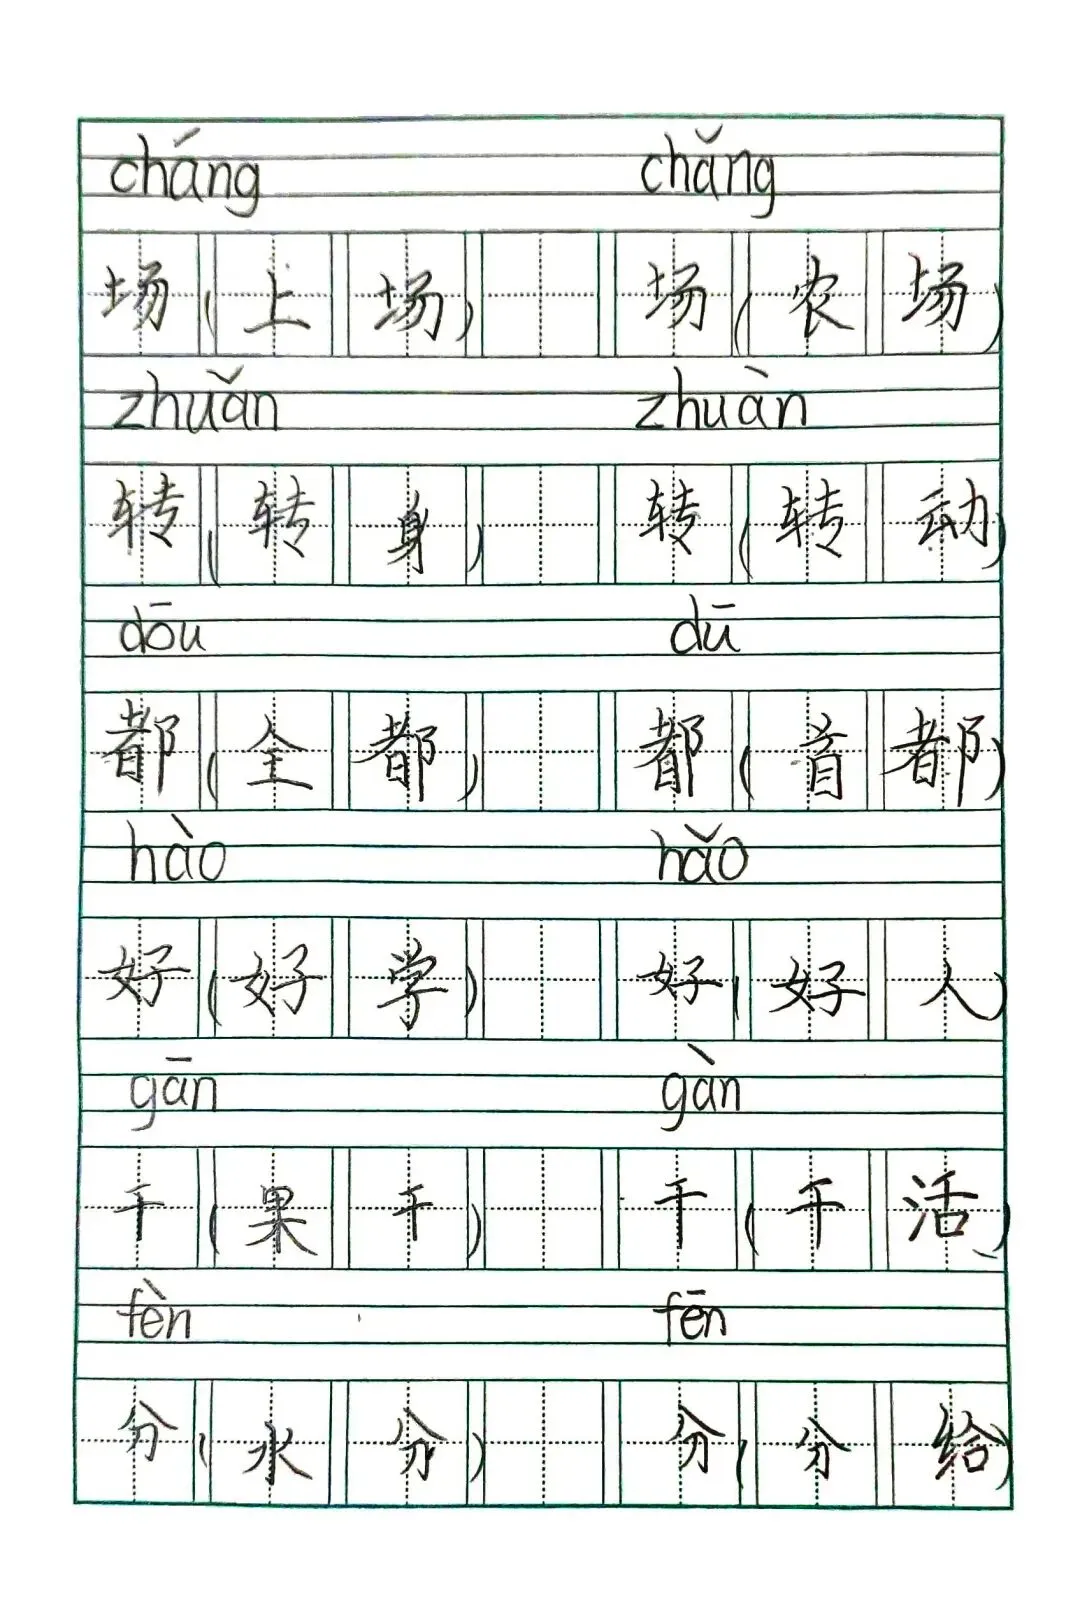 cháng chǎng
场(上场) 场(农场)
zhuǎn zhuàn
转(转身) 转(转动)
dōu dū
都(全都) 都(首都)
hào hǎo
好(好学) 好(好人)
gān gàn
干(果干) 干(干活)
fèn fēn
分(水分) 分(分给)